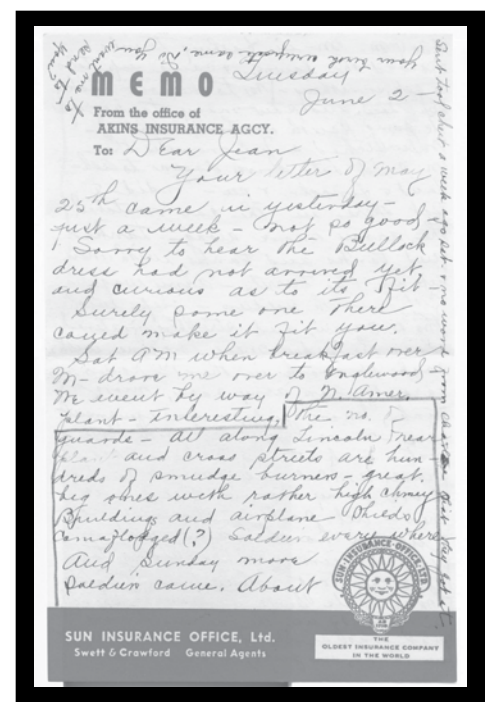 your birth certificate came, Do
you want me to
send to
you?
MEMO
Tuesday
June 2 -
From the office of
AKINS INSURANCE AGCY.
To: Dear Jean
Your letter of May
25th came in yesterday -
just a week - not so good -
Sorry to hear the Bullock
dress had not arrived yet,
and curious as to its fit -
Surely some one there
could make it fit you.
Sat AM when breakfast over
M- drove me over to Inglewood -
We went by way of N. Amer.
plant - interesting, the no. of
guards - all along Lincoln near
plant and cross streets are hun-
dreds of smudge burners - great,
big ones with rather high chimney
Buildings and airplane sheds
camaflodged(?) Soldiers every where
And Sunday more
soldiers came. About
Sent tool chest a week ago Sat. & no word from that they got it.
SUN INSURANCE OFFICE, Ltd.
Swett & Crawford General Agents
SUN·INSURANCE·OFFICE·LTD
THE
OLDEST INSURANCE COMPANY
IN THE WORLD